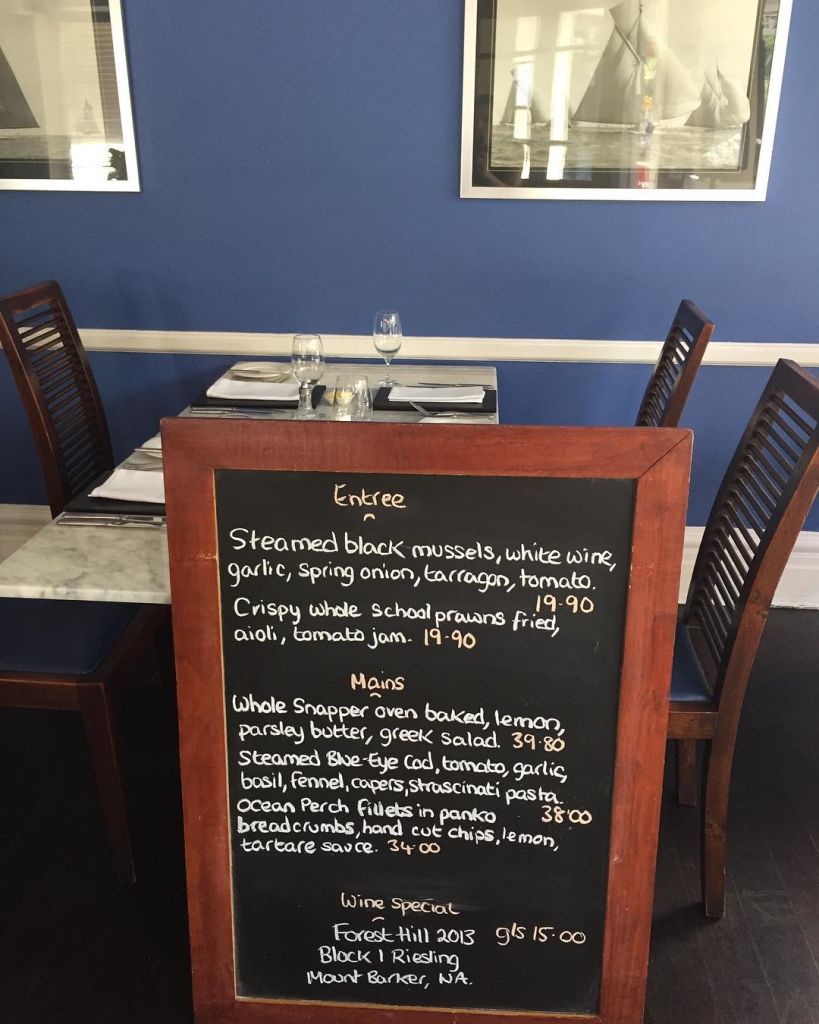 Entree
Steamed black mussels, white wine,
garlic, spring onion, tarragon, tomato.
19.90
Crispy whole school prawns fried,
aioli, tomato jam. 19.90
Mains
Whole Snapper oven baked, lemon,
parsley butter, greek salad. 39.80
Steamed Blue-Eye Cod, tomato, garlic,
basil, fennel, capers, strascinati pasta.
38.00
Ocean Perch fillets in panko
breadcrumbs, hand cut chips, lemon,
tartare sauce. 34.00
Wine Special
Forest Hill 2013 gls 15.00
Block 1 Riesling
Mount Barker, WA.